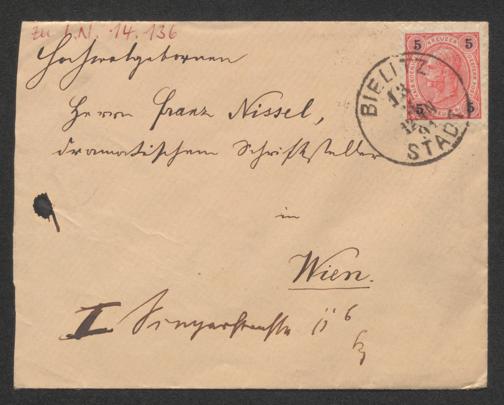 zu I.N. 14.136
Hochwolgebornen
Herrn Franz Nissel,
dramatischem Schriftsteller
in
Wien.
I Singerstrasse
5 KREUZER 5
5 5
BIELITZ
STADT